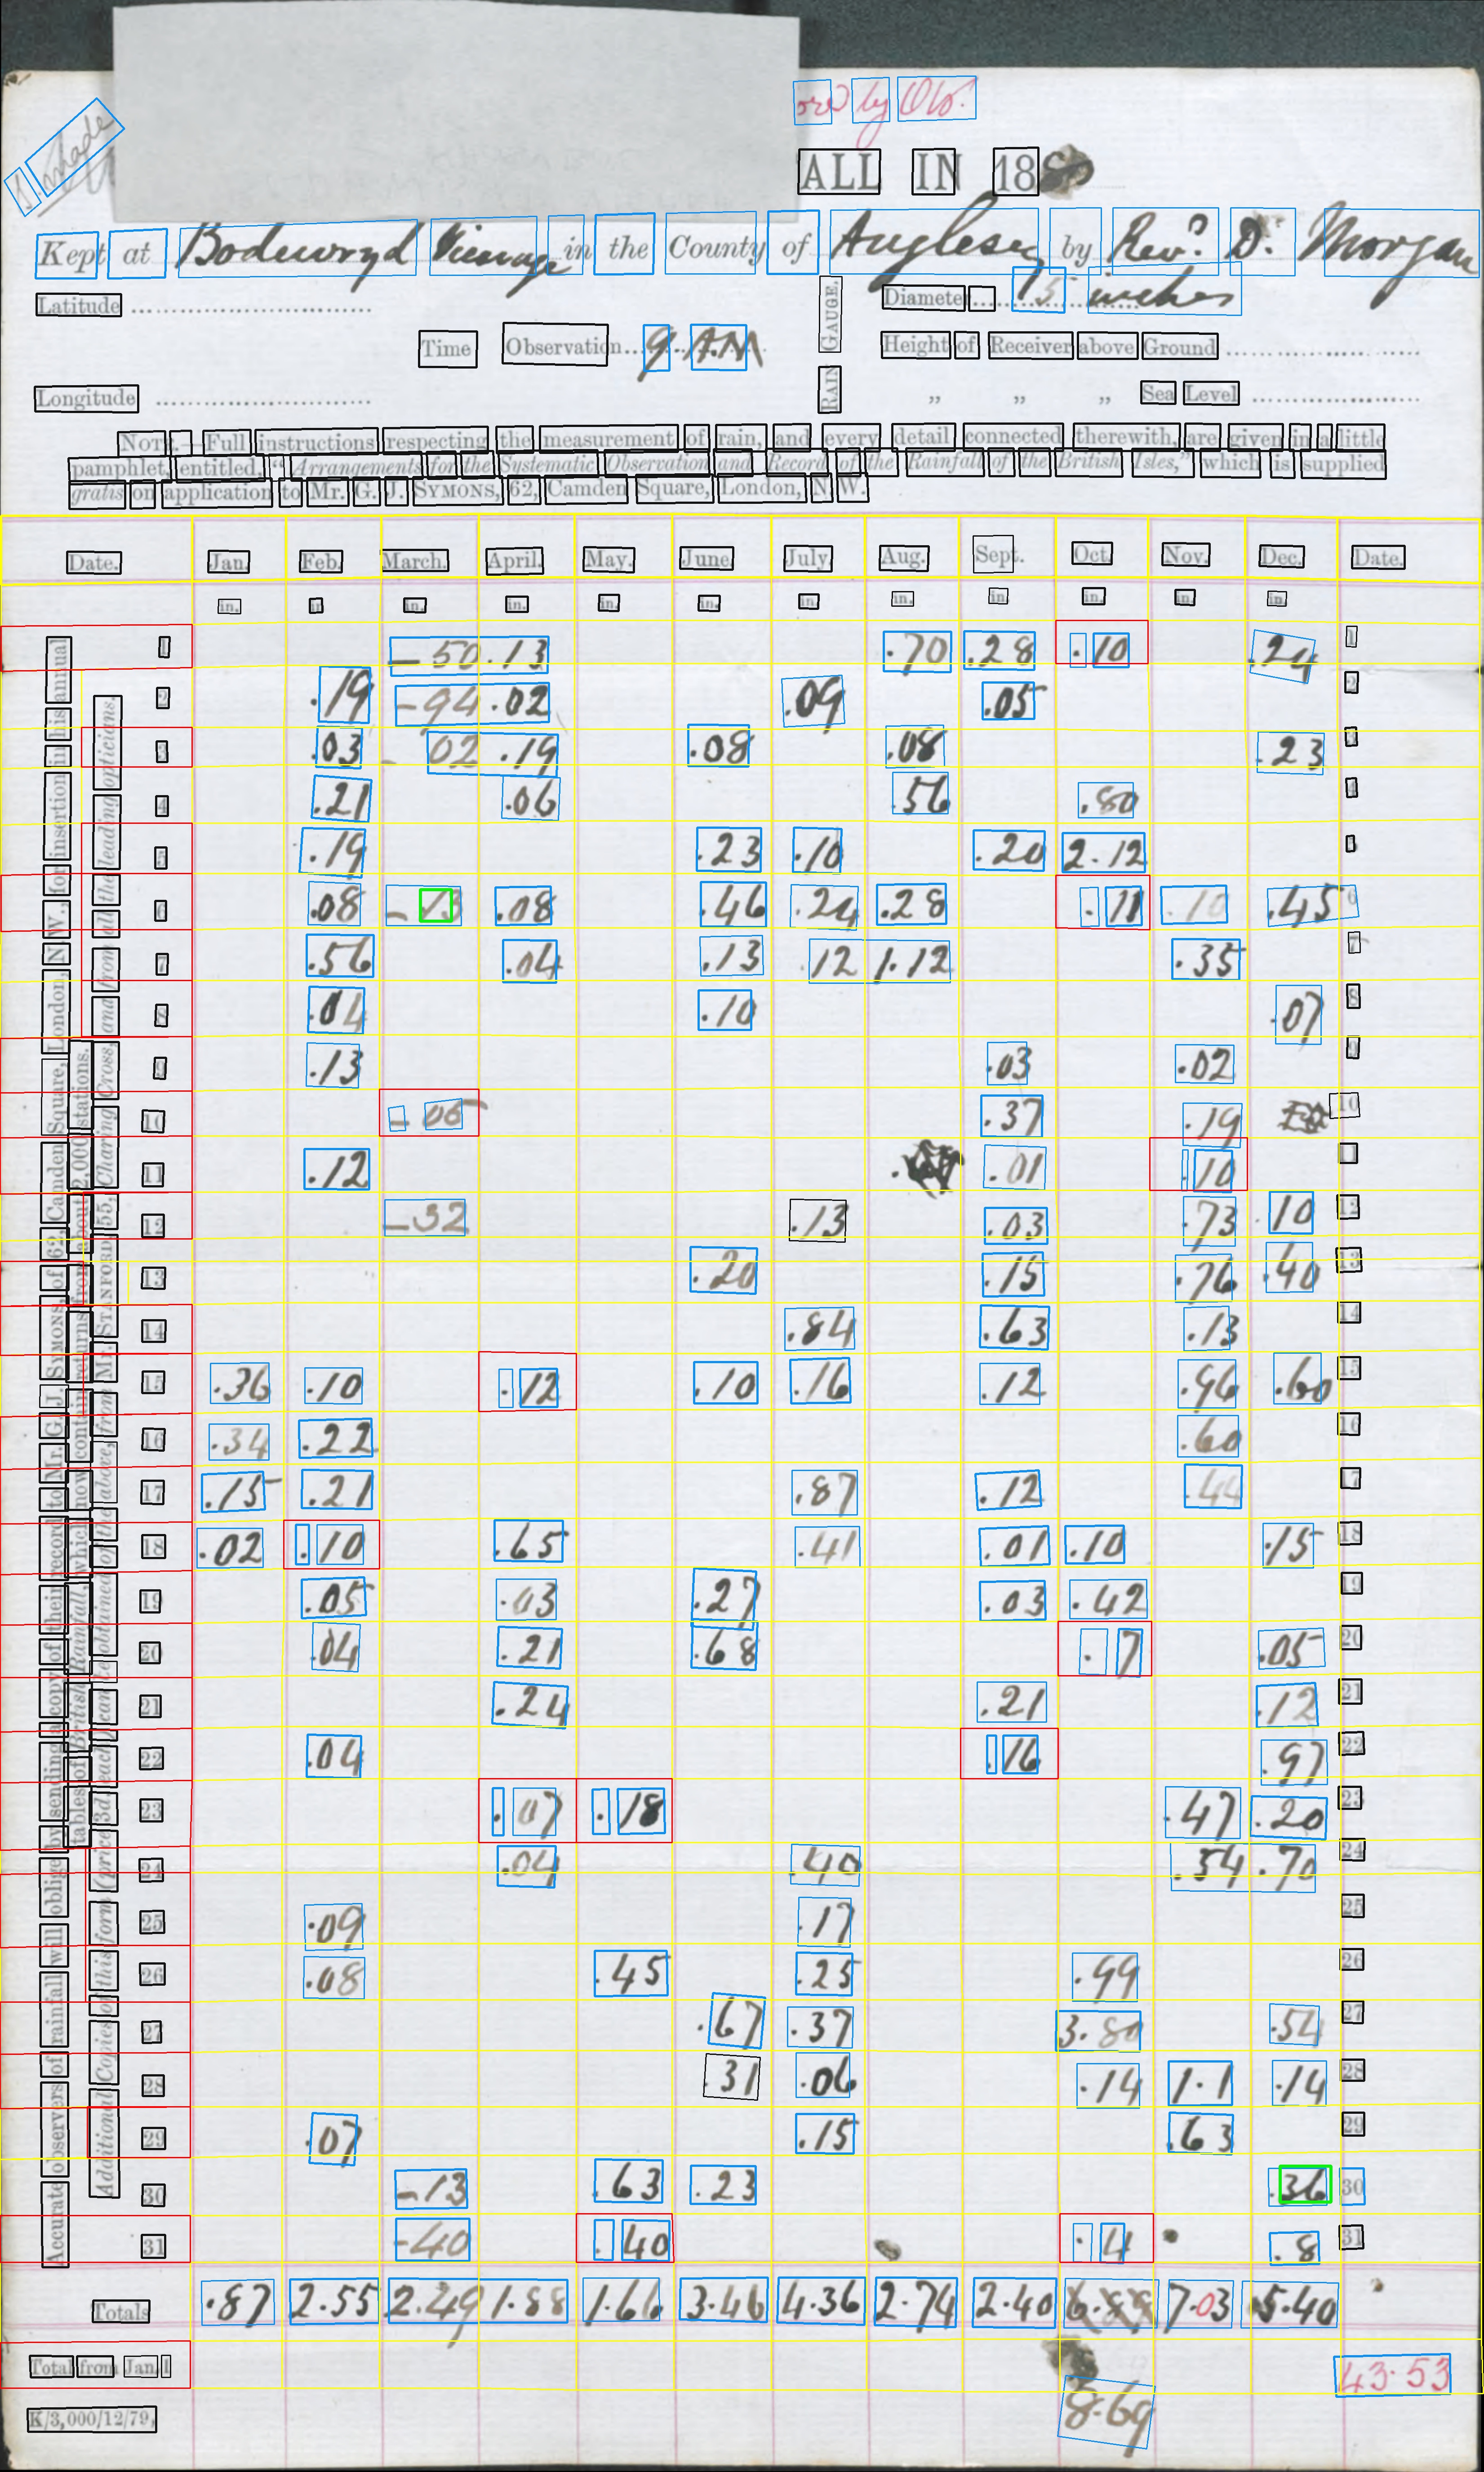 ored by Obr.
B. made
ALL IN 1880
Kept at Bodewryd Vicarage in the County of Anglesey by Revd. D. Morgan
Latitude
Time Observation 9 A.M
RAIN GAUGE.
Diameter 5 inches
Height of Receiver above Ground
Longitude
„ „ „ Sea Level
NOTE.—Full instructions respecting the measurement of rain, and every detail connected therewith, are given in a little
pamphlet, entitled, "Arrangements for the Systematic Observation and Record of the Rainfall of the British Isles," which is supplied
gratis on application to Mr. G. J. SYMONS, 62, Camden Square, London, N.W.
Accurate observers of rainfall will oblige by sending a copy of their record to Mr. G. J. SYMONS, of 62, Camden Square, London, N.W., for insertion in his annual
tables of British Rainfall, which now contain returns from about 2,000 stations.
Additional Copies of this form (price 3d. each) can be obtained of the above, from Mr. STANFORD, 55, Charing Cross, and from all the leading opticians.
Date. Jan. Feb. March. April. May. June. July. Aug. Sept. Oct. Nov. Dec. Date.
in. in. in. in. in. in. in. in. in. in. in. in.
1 — 50 .13 .70 .28 .10 .24 1
2 .19 — 94 .02 .09 .05 2
3 .03 — 02 .19 .08 .08 .23 3
4 .21 .06 .56 .80 4
5 .19 .23 .10 .20 2.12 5
6 .08 — 13 .08 .46 .24 .28 .11 .10 .45 6
7 .56 .04 .13 .12 1.12 .35 7
8 .04 .10 .07 8
9 .13 .03 .02 9
10 — 05 .37 .19 10
11 .12 .01 .10 11
12 — 32 .13 .03 .73 .10 12
13 .20 .15 .76 .40 13
14 .84 .63 .13 14
15 .36 .10 .12 .10 .16 .12 .96 .60 15
16 .34 .22 .60 16
17 .15 .21 .87 .12 .44 17
18 .02 .10 .65 .41 .01 .10 .15 18
19 .05 .03 .27 .03 .42 19
20 .04 .21 .68 .7 .05 20
21 .24 .21 .12 21
22 .04 .16 .97 22
23 .07 .18 .47 .20 23
24 .04 .40 .54 .70 24
25 .09 .17 25
26 .08 .45 .25 .99 26
27 .67 .37 3.80 .54 27
28 .31 .06 .14 1.1 .14 28
29 .07 .15 .63 29
30 — 13 .63 .23 .36 30
31 — 40 .40 .4 .8 31
Totals .87 2.55 2.49 1.88 1.66 3.46 4.36 2.74 2.40 6.89 7.03 5.40
Total from Jan. 1 43.53
8.69
K/3,000/12/79,